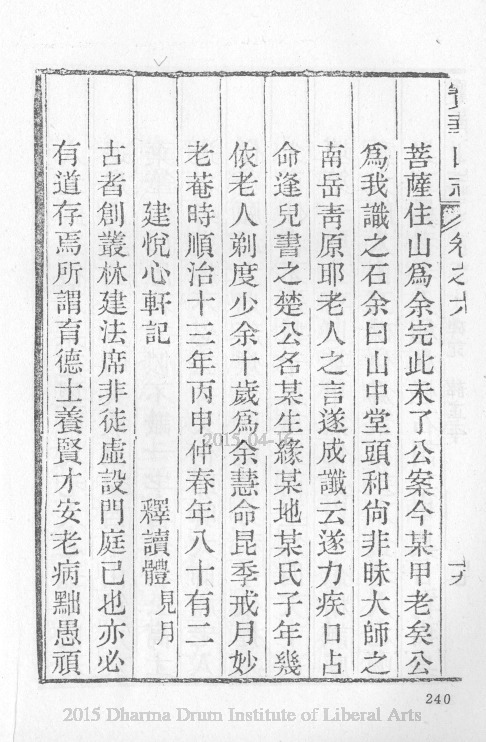 寶華山志
卷之六
十六
菩薩住山爲余完此未了公案今某甲老矣公
爲我識之石余曰山中堂頭和尙非昧大師之
南岳靑原耶老人之言遂成讖云遂力疾口占
命逢兒書之楚公名某生緣某地某氏子年幾
依老人剃度少余十歲爲余慧命昆季戒月妙
老菴時順治十三年丙申仲春年八十有二
建悅心軒記
釋讀體見月
古者創叢林建法席非徒虛設門庭已也亦必
有道存焉所謂育德士養賢才安老病黜愚頑
240
2015 Dharma Drum Institute of Liberal Arts